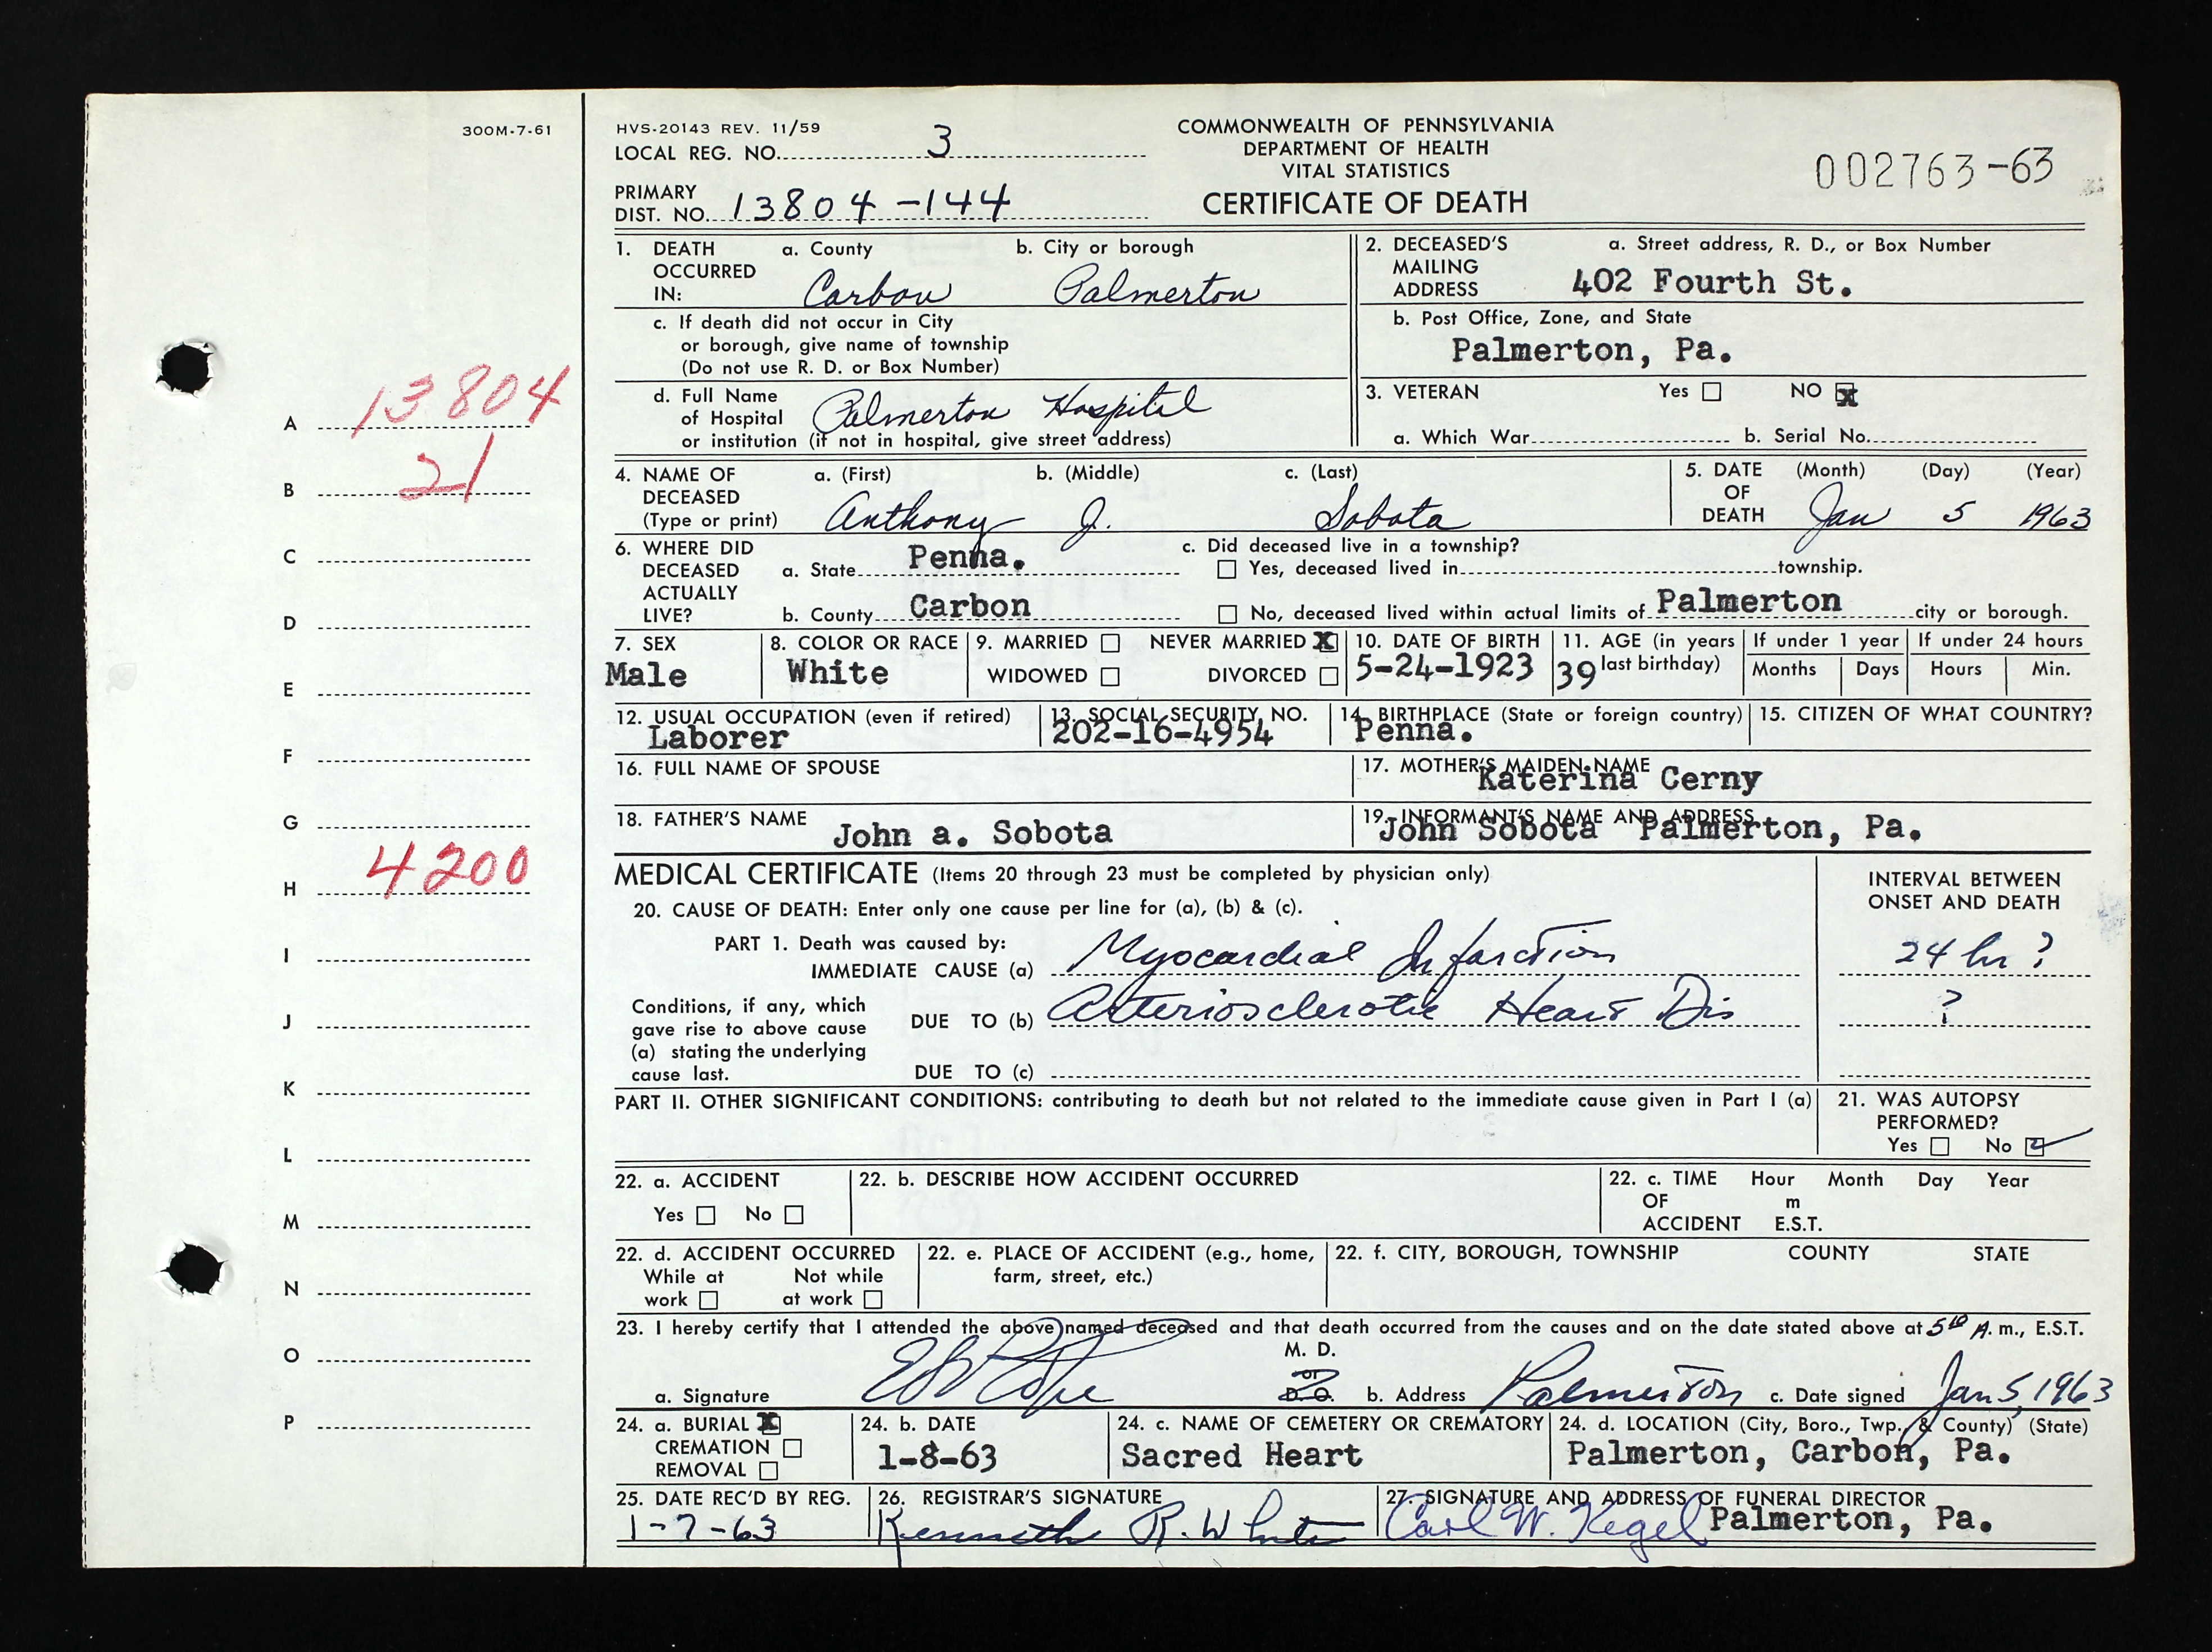 300M-7-61
HVS-20143 REV. 11/59
LOCAL REG. NO. 3
PRIMARY
DIST. NO. 13804-144
COMMONWEALTH OF PENNSYLVANIA
DEPARTMENT OF HEALTH
VITAL STATISTICS
CERTIFICATE OF DEATH
002763-63
A 13804
B 21
C
D
E
F
G
H 4200
I
J
K
L
M
N
O
P
1. DEATH OCCURRED IN: a. County Carbon b. City or borough Palmerton
c. If death did not occur in City
or borough, give name of township
(Do not use R. D. or Box Number)
d. Full Name
of Hospital Palmerton Hospital
or institution (if not in hospital, give street address)
2. DECEASED'S MAILING ADDRESS a. Street address, R. D., or Box Number
402 Fourth St.
b. Post Office, Zone, and State
Palmerton, Pa.
3. VETERAN Yes NO X
a. Which War b. Serial No.
4. NAME OF DECEASED (Type or print) a. (First) b. (Middle) c. (Last)
Anthony J. Sobota
5. DATE OF DEATH (Month) (Day) (Year)
Jan 5 1963
6. WHERE DID DECEASED ACTUALLY LIVE?
a. State Penna.
b. County Carbon
c. Did deceased live in a township?
Yes, deceased lived in township.
No, deceased lived within actual limits of Palmerton city or borough.
7. SEX
Male
8. COLOR OR RACE
White
9. MARRIED NEVER MARRIED X
WIDOWED DIVORCED
10. DATE OF BIRTH
5-24-1923
11. AGE (in years last birthday)
39
If under 1 year
Months Days
If under 24 hours
Hours Min.
12. USUAL OCCUPATION (even if retired)
Laborer
13. SOCIAL SECURITY NO.
202-16-4954
14. BIRTHPLACE (State or foreign country)
Penna.
15. CITIZEN OF WHAT COUNTRY?
16. FULL NAME OF SPOUSE
17. MOTHER'S MAIDEN NAME
Katerina Cerny
18. FATHER'S NAME
John a. Sobota
19. INFORMANT'S NAME AND ADDRESS
John Sobota Palmerton, Pa.
MEDICAL CERTIFICATE (Items 20 through 23 must be completed by physician only)
INTERVAL BETWEEN
ONSET AND DEATH
20. CAUSE OF DEATH: Enter only one cause per line for (a), (b) & (c).
PART 1. Death was caused by:
IMMEDIATE CAUSE (a) Myocardial Infarction 24 hr ?
Conditions, if any, which
gave rise to above cause
(a) stating the underlying
cause last.
DUE TO (b) Arteriosclerotic Heart Dis ?
DUE TO (c)
PART II. OTHER SIGNIFICANT CONDITIONS: contributing to death but not related to the immediate cause given in Part I (a)
21. WAS AUTOPSY
PERFORMED?
Yes No
22. a. ACCIDENT
Yes No
22. b. DESCRIBE HOW ACCIDENT OCCURRED
22. c. TIME OF ACCIDENT Hour Month Day Year
m
E.S.T.
22. d. ACCIDENT OCCURRED
While at work Not while at work
22. e. PLACE OF ACCIDENT (e.g., home,
farm, street, etc.)
22. f. CITY, BOROUGH, TOWNSHIP COUNTY STATE
23. I hereby certify that I attended the above named deceased and that death occurred from the causes and on the date stated above at 5 A. m., E.S.T.
a. Signature M. D. or D. O. b. Address Palmerton c. Date signed Jan 5, 1963
24. a. BURIAL X
CREMATION
REMOVAL
24. b. DATE
1-8-63
24. c. NAME OF CEMETERY OR CREMATORY
Sacred Heart
24. d. LOCATION (City, Boro., Twp., & County) (State)
Palmerton, Carbon, Pa.
25. DATE REC'D BY REG.
1-7-63
26. REGISTRAR'S SIGNATURE
Kenneth R.
27. SIGNATURE AND ADDRESS OF FUNERAL DIRECTOR
Carl W. Kegel Palmerton, Pa.